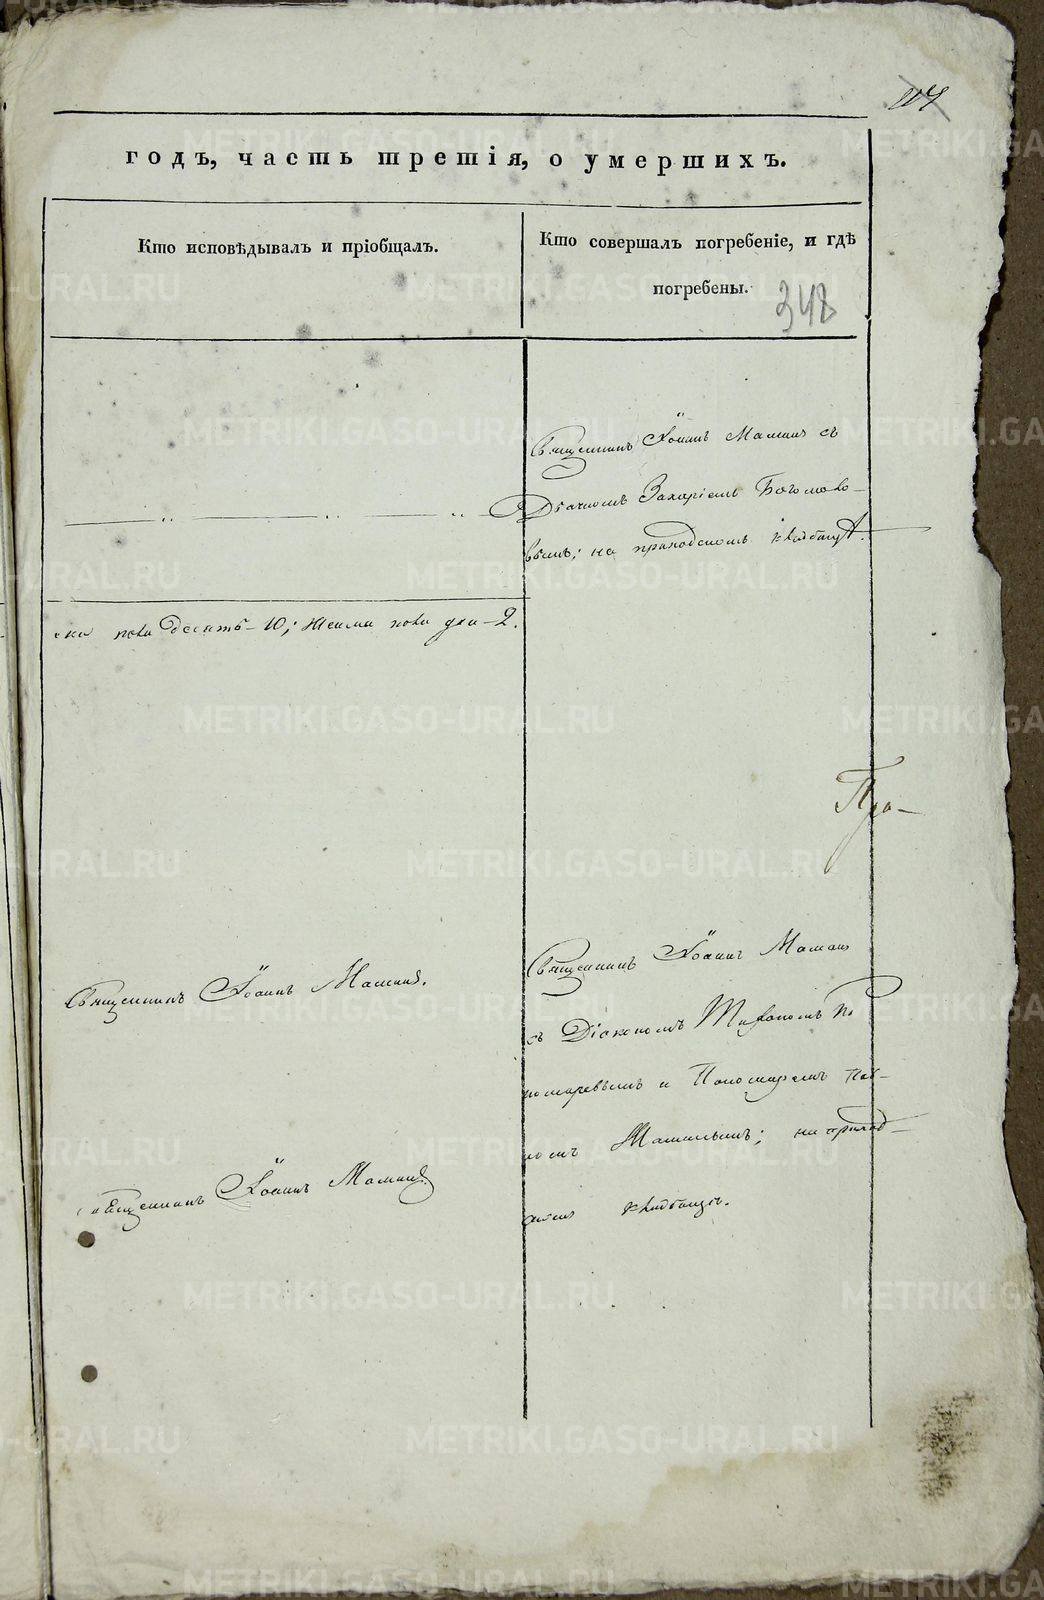 годъ, часть третія, о умершихъ.
Кто исповѣдывалъ и пріобщалъ.
Кто совершалъ погребеніе, и гдѣ
погребены.
348
Священникъ Іоаннъ Маминъ съ
Дьячкомъ Захаріемъ Богомоло-
вымъ; на приходскомъ кладбищѣ.
ска пола десять-10; женска пола два-2.
Священникъ Іоаннъ Маминъ.
Священникъ Іоаннъ Маминъ
съ Діакономъ Тихономъ По
номаревымъ и Пономаремъ
Маминымъ; на приход-
скомъ кладбищѣ.
Священникъ Іоаннъ Маминъ.
METRIKI.GASO-URAL.RU